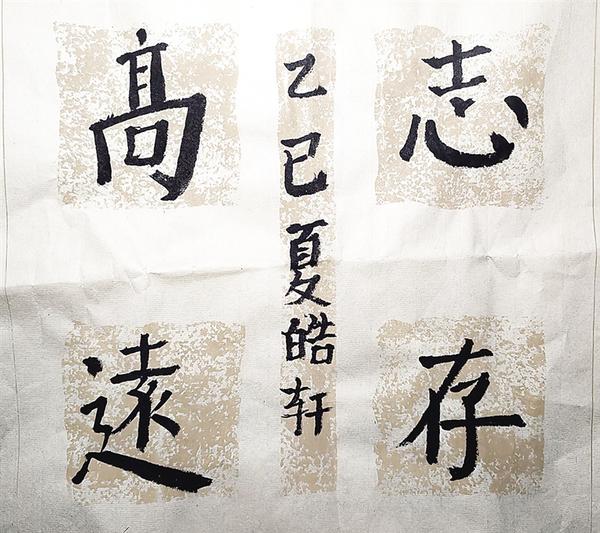 志存
高遠
乙巳夏皓轩